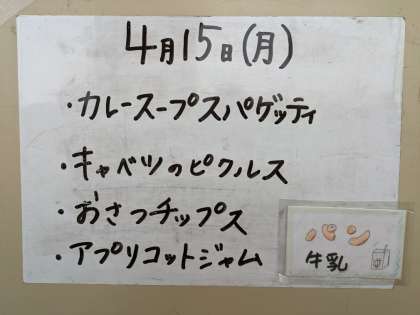 4月15日(月)
・カレースープスパゲッティ
・キャベツのピクルス
・おさつチップス
・アプリコットジャム
パン
牛乳